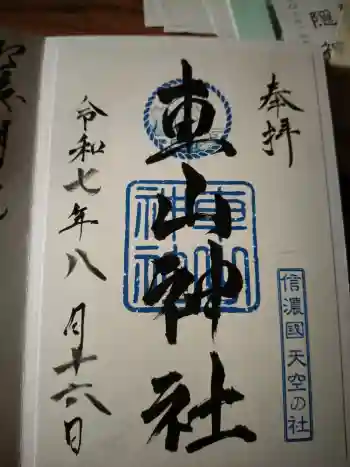 奉拝
車山神社
車山神社
信濃國 天空の社
令和七年八月十六日